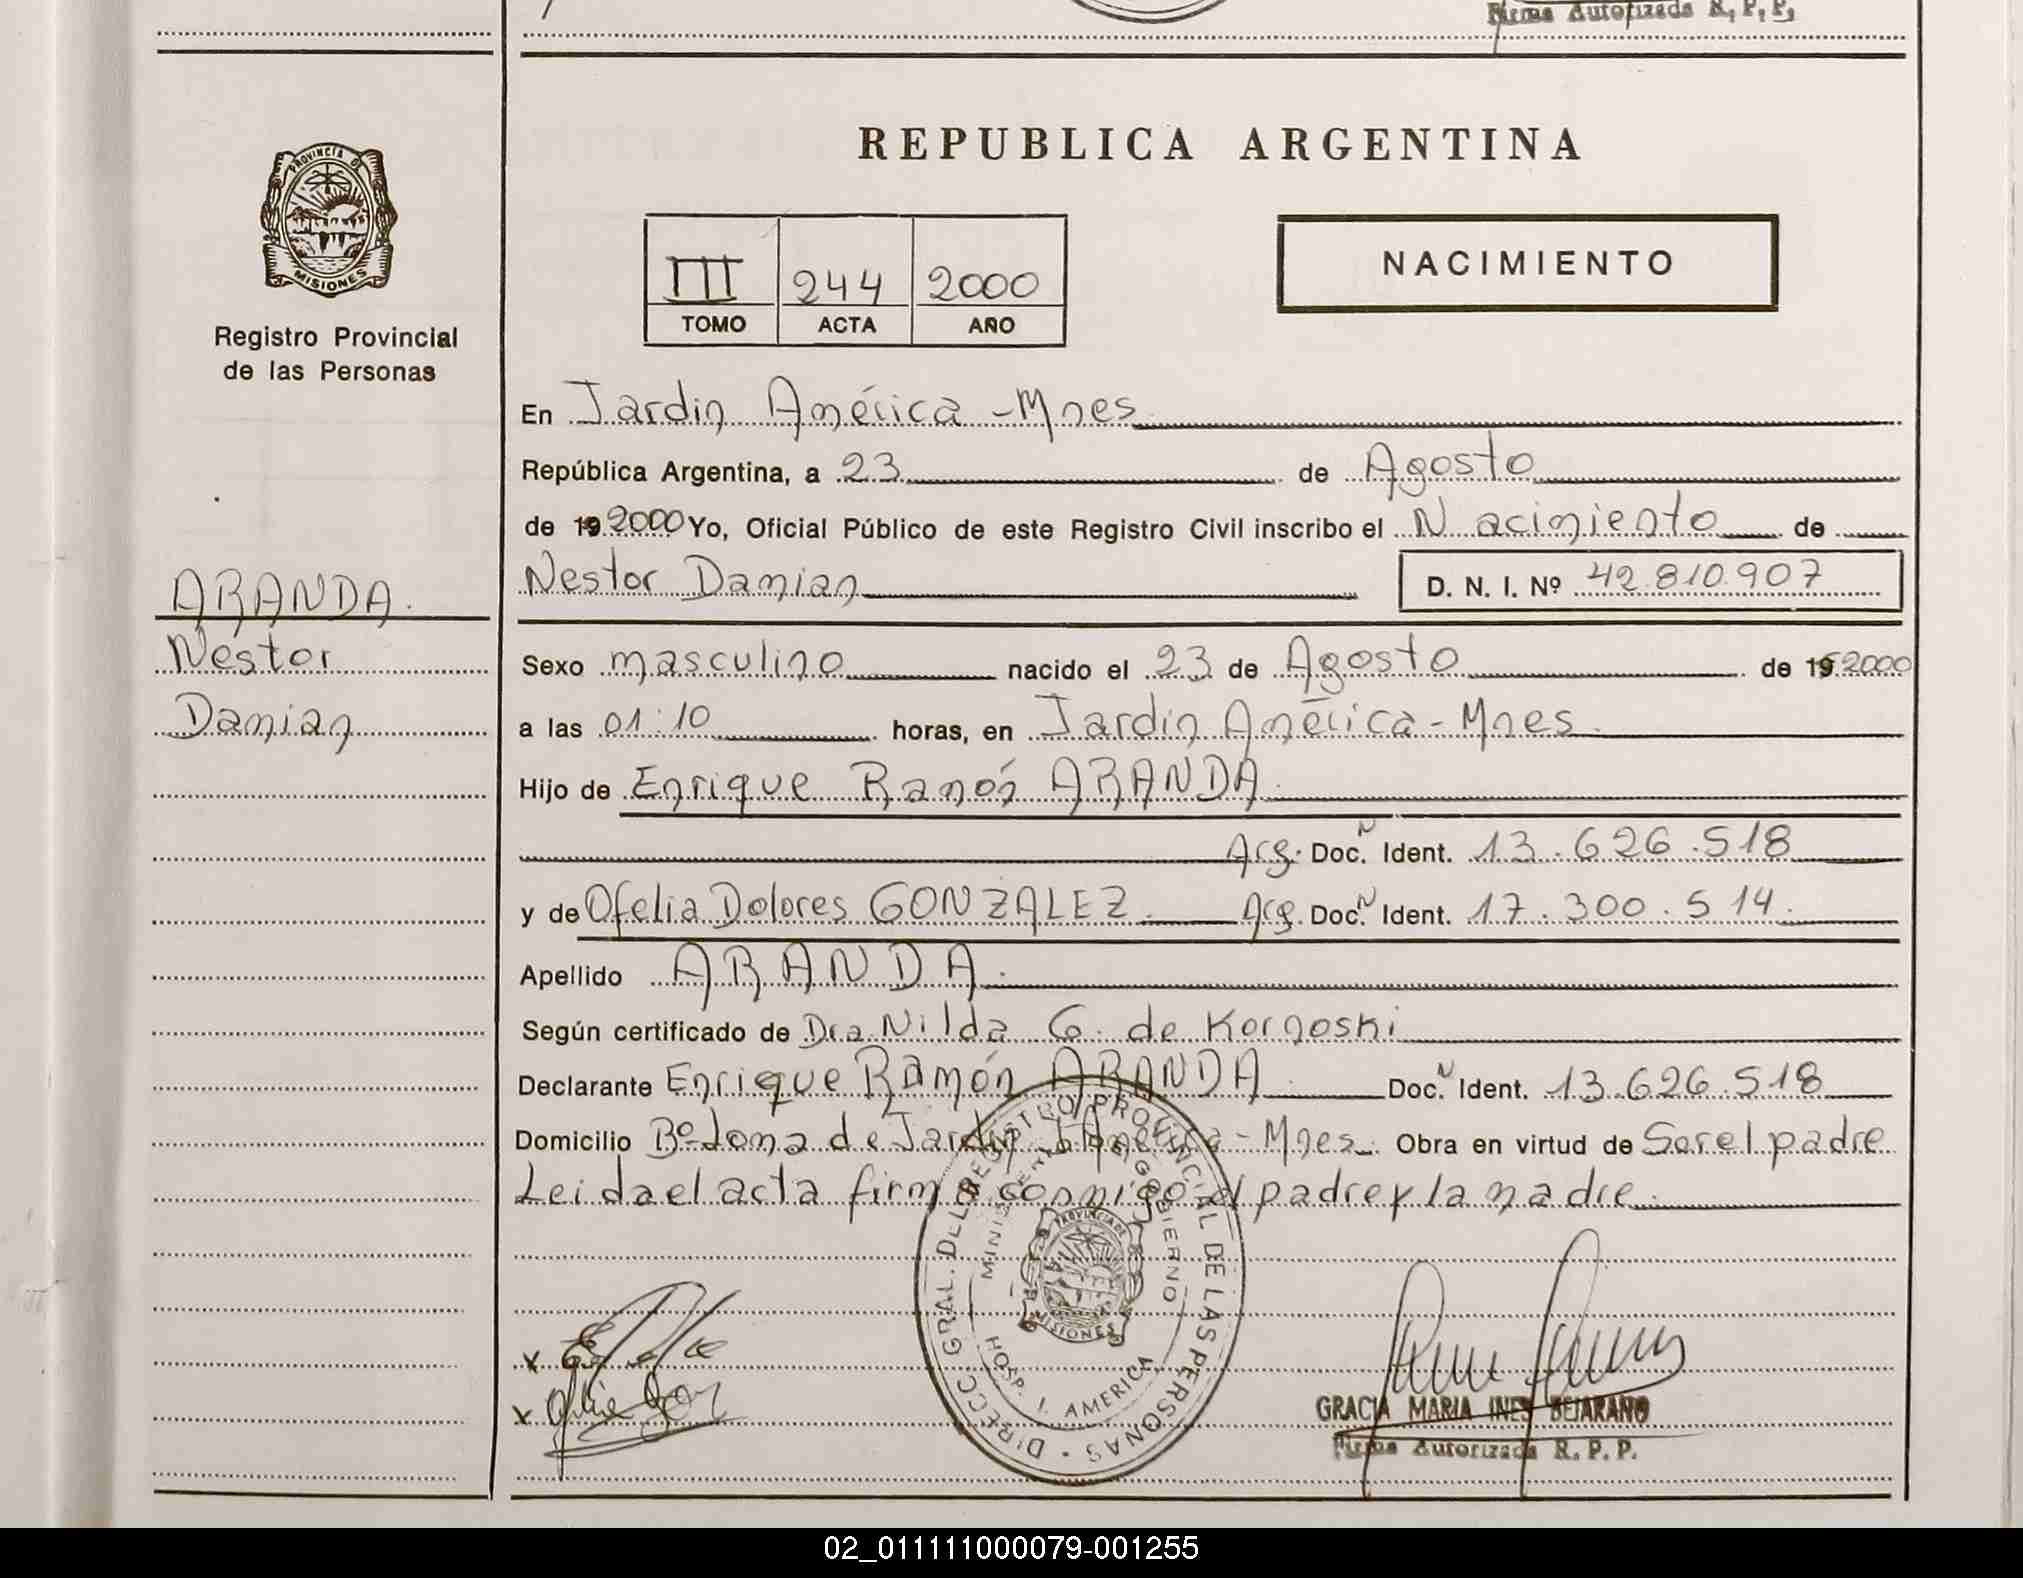 Firma Autorizada R. P. P.
PROVINCIA DE
MISIONES
Registro Provincial
de las Personas
REPUBLICA ARGENTINA
III 244 2000
TOMO ACTA AÑO
NACIMIENTO
En Jardin América - Mnes
República Argentina, a 23 de Agosto
de 19 2000 Yo, Oficial Público de este Registro Civil inscribo el Nacimiento de
Nestor Damian D. N. I. Nº 42.810.907
ARANDA.
Nestor
Damian
Sexo masculino nacido el 23 de Agosto de 19 2000
a las 01:10 horas, en Jardin América - Mnes.
Hijo de Enrique Ramón ARANDA.
Arg. Doc. N Ident. 13.626.518
y de Ofelia Dolores GONZALEZ. Arg. Doc. N Ident. 17.300.514.
Apellido ARANDA.
Según certificado de Dra Nilda G. de Kornoski
Declarante Enrique Ramón ARANDA. Doc. N Ident. 13.626.518
Domicilio Bº Loma de Jardin América - Mnes. Obra en virtud de Ser el padre
Leida el acta firma conmigo el padre y la madre.
DIRECC. GRAL. DEL REGISTRO PROVINCIAL DE LAS PERSONAS
MINISTERIO DE GOBIERNO
PROVINCIA DE
MISIONES
HOSP. J. AMERICA
x
x
GRACIA MARIA INES BEJARANO
Firma Autorizada R. P. P.
02_011111000079-001255